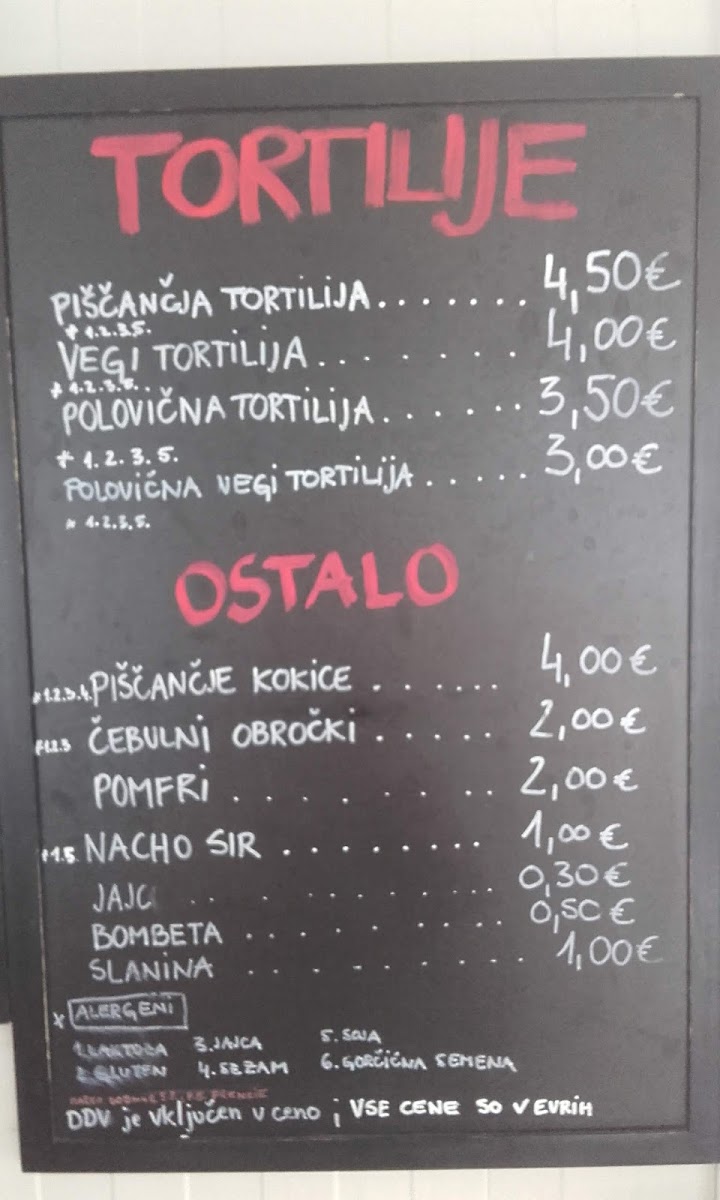 TORTILIJE
PIŠČANČJA TORTILIJA....... 4,50€
* 1.2.3.5.
VEGI TORTILIJA......... 4,00€
* 1.2.3.5..
POLOVIČNA TORTILIJA...... 3,50€
* 1.2.3.5.
POLOVIČNA VEGI TORTILIJA..... 3,00€
* 1.2.3.5.
OSTALO
*1.2.3.4. PIŠČANČJE KOKICE....... 4,00€
*1.2.3 ČEBULNI OBROČKI...... 2,00€
POMFRI........ 2,00€
*1.5. NACHO SIR......... 1,00€
JAJC......... 0,30€
BOMBETA.......... 0,50€
SLANINA......... 1,00€
* ALERGENI
1.LAKTOZA 3.JAJCA 5.SOJA
2.GLUTEN 4.SEZAM 6.GORČIČNA SEMENA
DDV je vključen v ceno ; VSE CENE SO V EVRIH